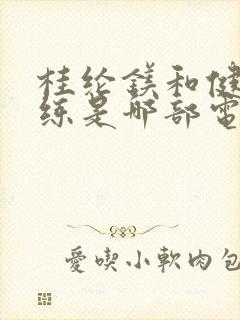 桂纶鎂和健
练是哪部電
愛喫小軟肉包